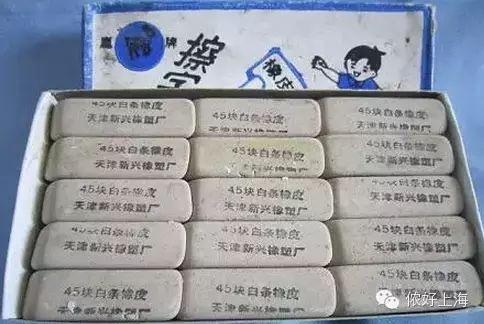 鹰 牌
擦字
橡皮
45块白条橡皮
天津新兴橡塑厂
45块白条橡皮
天津新兴橡塑厂
45块白条橡皮
天津新兴橡塑厂
45块白条橡皮
天津新兴橡塑厂
45块白条橡皮
天津新兴橡塑厂
45块白条橡皮
天津新兴橡塑厂
45块白条橡皮
天津新兴橡塑厂
45块白条橡皮
天津新兴橡塑厂
45块白条橡皮
天津新兴橡塑厂
45块白条橡皮
天津新兴橡塑厂
45块白条橡皮
天津新兴橡塑厂
45块白条橡皮
天津新兴橡塑厂
45块白条橡皮
天津新兴橡塑厂
45块白条橡皮
天津新兴橡塑厂
45块白条橡皮
天津新兴橡塑厂
侬好上海